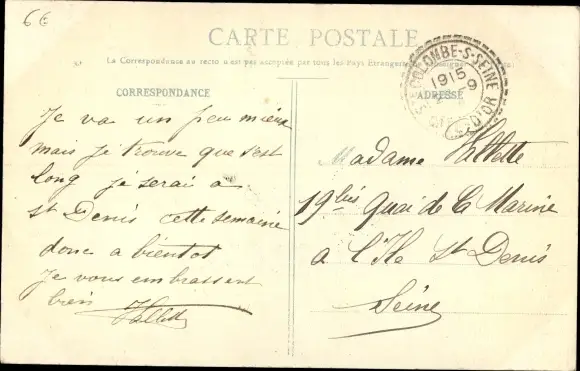 6€
CARTE POSTALE
La Correspondance au recto n'est pas acceptée par tous les Pays Etrangers
CORRESPONDANCE
Je va un peu mieux
mais je trouve que s'est
long je serai a
St Denis cette semaine
donc a bientot
Je vous embrassent
bien Vallette
STE COLOMBE-S-SEINE
1915
9
CÔTE D'OR
ADRESSE
Madame Vallette
19 bis Quai de la Marine
a l'Ile St Denis
Seine